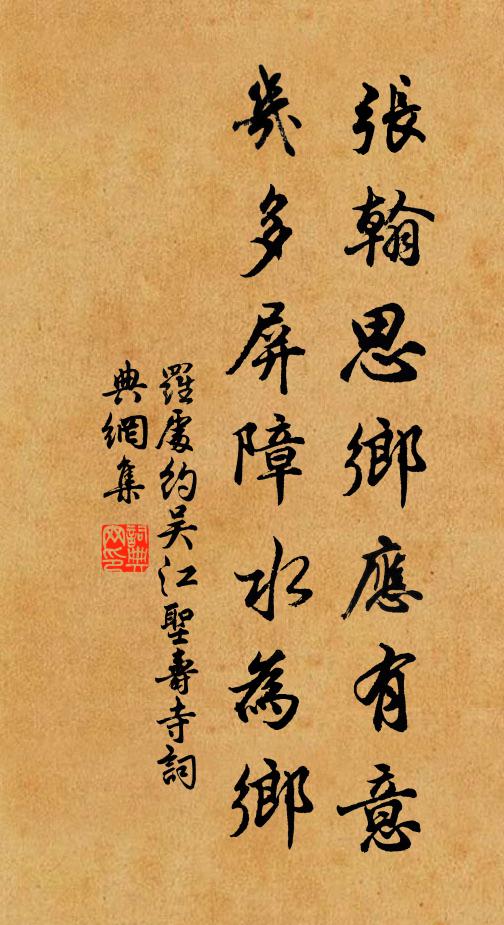 張翰思鄉應有意
幾多屏障水為鄉
羅處約吳江聖壽寺詞
典網集
詞典
网印